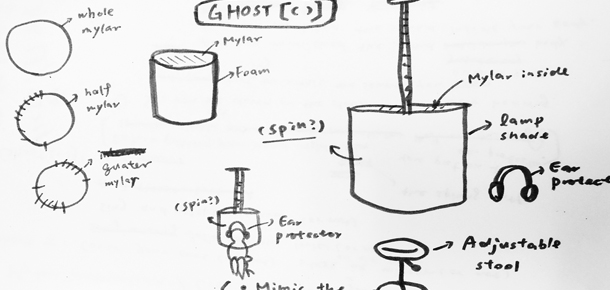 GHOST [c)]
whole
mylar
Mylar
Foam
half
mylar
quater
mylar
Mylar inside
lamp
shade
(spin?)
Ear
protect
(spin?)
Ear
protecter
Adjustable
stool
Mimic the